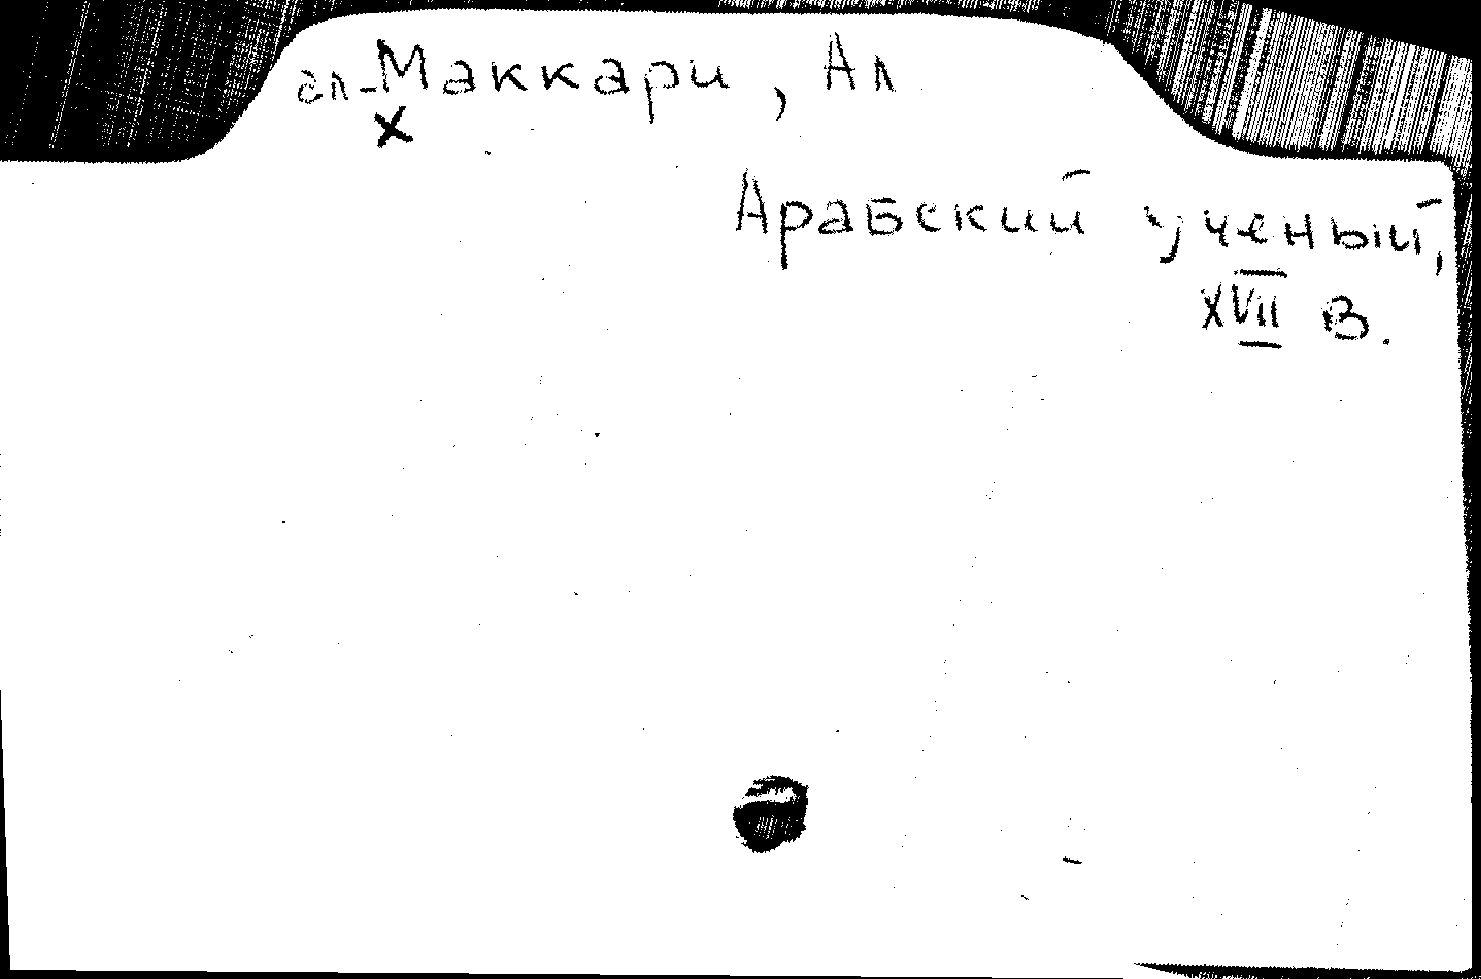 ал-Маккари, Ал
х
Арабский ученый,
XVII в.